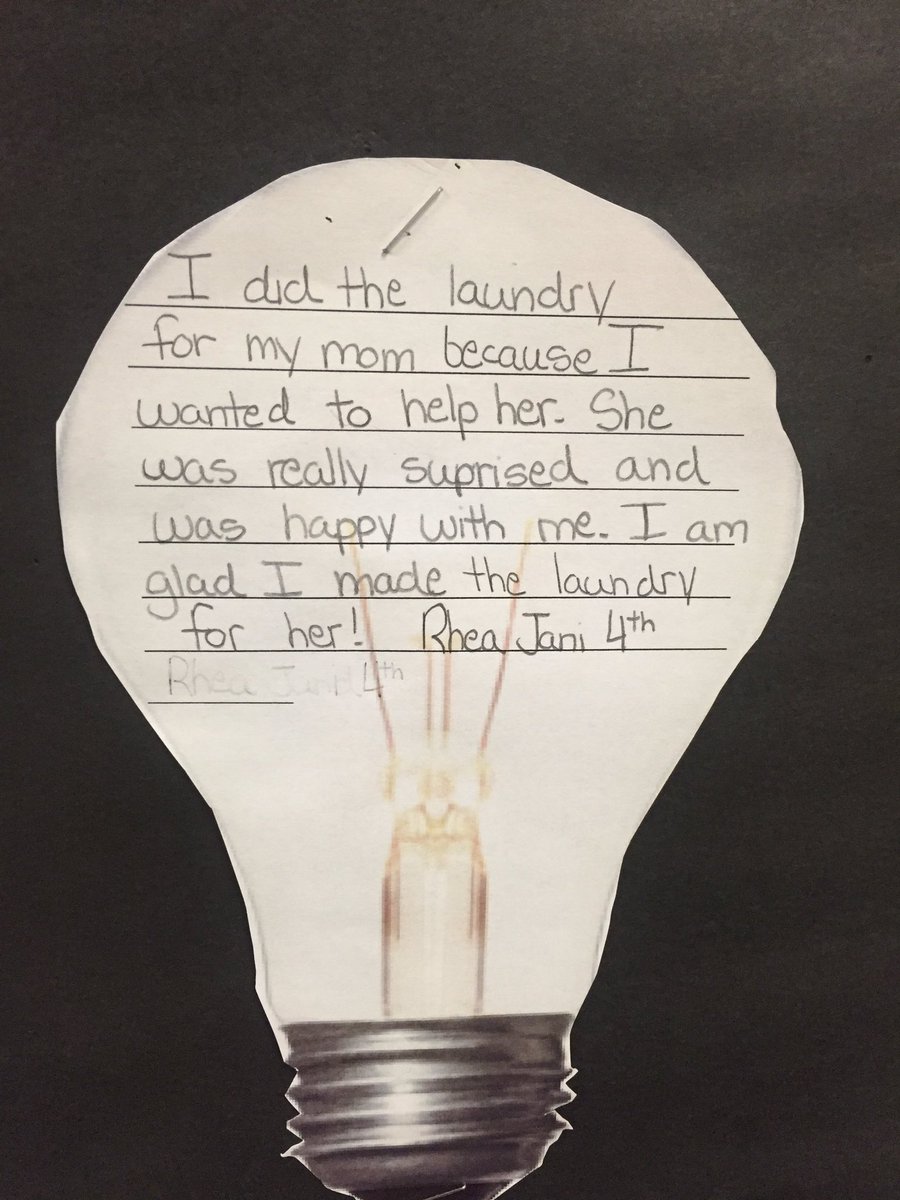 I did the laundry
for my mom because I
wanted to help her. She
was really suprised and
was happy with me. I am
glad I made the laundry
for her! Rhea Jani 4th
Rhea Jani 4th